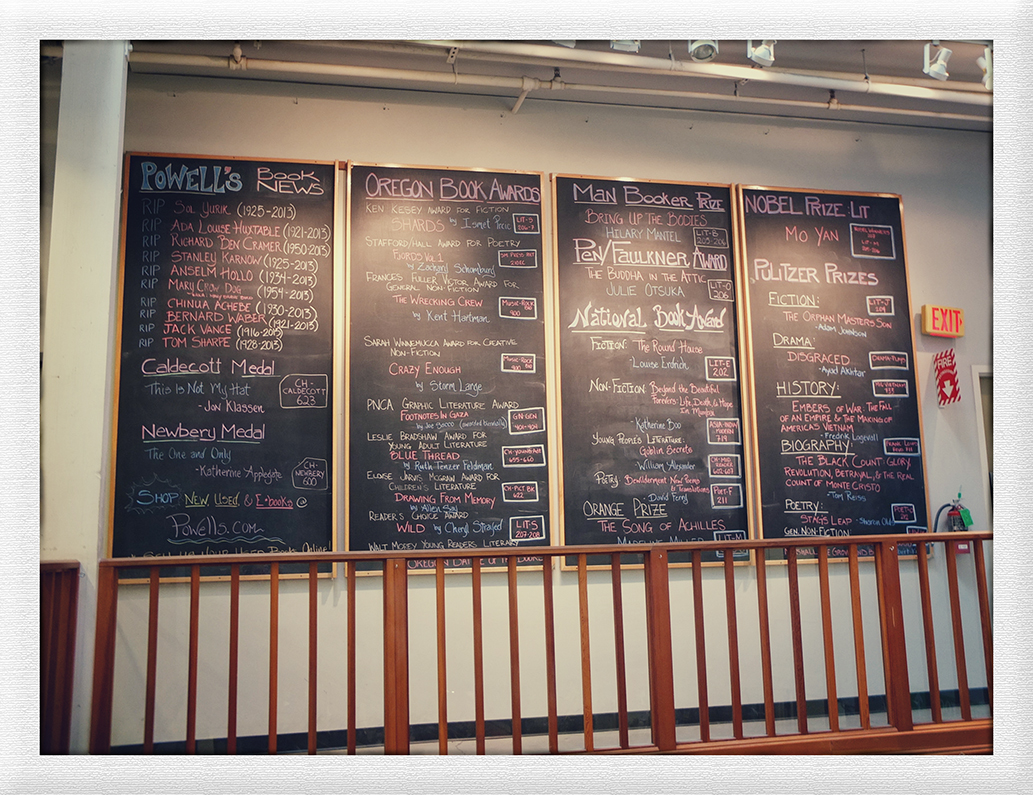 POWELL'S BOOK NEWS
RIP SOL YURIK (1925-2013)
RIP ADA LOUISE HUXTABLE (1921-2013)
RIP RICHARD BEN CRAMER (1950-2013)
RIP STANLEY KARNOW (1925-2013)
RIP ANSELM HOLLO (1934-2013)
RIP MARY CROW DOG (1954-2013)
RIP CHINUA ACHEBE (1930-2013)
RIP BERNARD WABER (1921-2013)
RIP JACK VANCE (1916-2013)
RIP TOM SHARPE (1928-2013)
Caldecott Medal
This Is Not My Hat
- Jon Klassen
CH-
CALDECOTT
623
Newbery Medal
The One and Only
- Katherine Applegate
CH-
NEWBERY
600
SHOP NEW, USED & E-books @
Powells.com
OREGON BOOK AWARDS
KEN KESEY AWARD FOR FICTION
SHARDS by Ismet Prcic
LIT-S
206-7
STAFFORD/HALL AWARD FOR POETRY
FJORDS VOL. 1
by Zachary Schomburg
FRANCES FULLER VICTOR AWARD FOR
GENERAL NON-FICTION
THE WRECKING CREW
by Kent Hartman
MUSIC-ROCK
400
SARAH WINNEMUCCA AWARD FOR CREATIVE
NON-FICTION
CRAZY ENOUGH
by Storm Large
MUSIC-ROCK
400
PNCA GRAPHIC LITERATURE AWARD
FOOTNOTES IN GAZA
by Joe Sacco (awarded biennially)
GN-GEN
401-404
LESLIE BRADSHAW AWARD FOR
YOUNG ADULT LITERATURE
BLUE THREAD
by Ruth Tenzer Feldman
ELOISE JARVIS MCGRAW AWARD FOR
CHILDREN'S LITERATURE
DRAWING FROM MEMORY
by Allen Say
CH-PCT BK
622
READER'S CHOICE AWARD
WILD by Cheryl Strayed
LIT-S
207-208
WALT MOREY YOUNG READERS LITERARY
MAN BOOKER PRIZE
BRING UP THE BODIES
HILARY MANTEL
PEN/FAULKNER AWARD
THE BUDDHA IN THE ATTIC
JULIE OTSUKA
LIT-O
206
National Book Award
FICTION: The Round House
- Louise Erdrich
LIT-E
202
NON-FICTION: Behind the Beautiful
Forevers: Life, Death, & Hope
In Mumbai
- Katherine Boo
YOUNG PEOPLE'S LITERATURE:
Goblin Secrets
- William Alexander
POETRY Bewilderment: New Poems
& Translations
- David Ferry
POET-F
211
ORANGE PRIZE
THE SONG OF ACHILLES
MADELINE MILLER
LIT-M
NOBEL PRIZE: LIT
MO YAN
PULITZER PRIZES
FICTION:
THE ORPHAN MASTER'S SON
- Adam Johnson
LIT-J
204
DRAMA:
DISGRACED
- Ayad Akhtar
DRAMA-PLAYS
HISTORY:
EMBERS OF WAR: THE FALL
OF AN EMPIRE & THE MAKING OF
AMERICA'S VIETNAM
- Fredrik Logevall
BIOGRAPHY:
THE BLACK COUNT: GLORY,
REVOLUTION, BETRAYAL, & THE REAL
COUNT OF MONTE CRISTO
- Tom Reiss
POETRY:
STAG'S LEAP - Sharon Olds
GEN. NON-FICTION
EXIT
FIRE